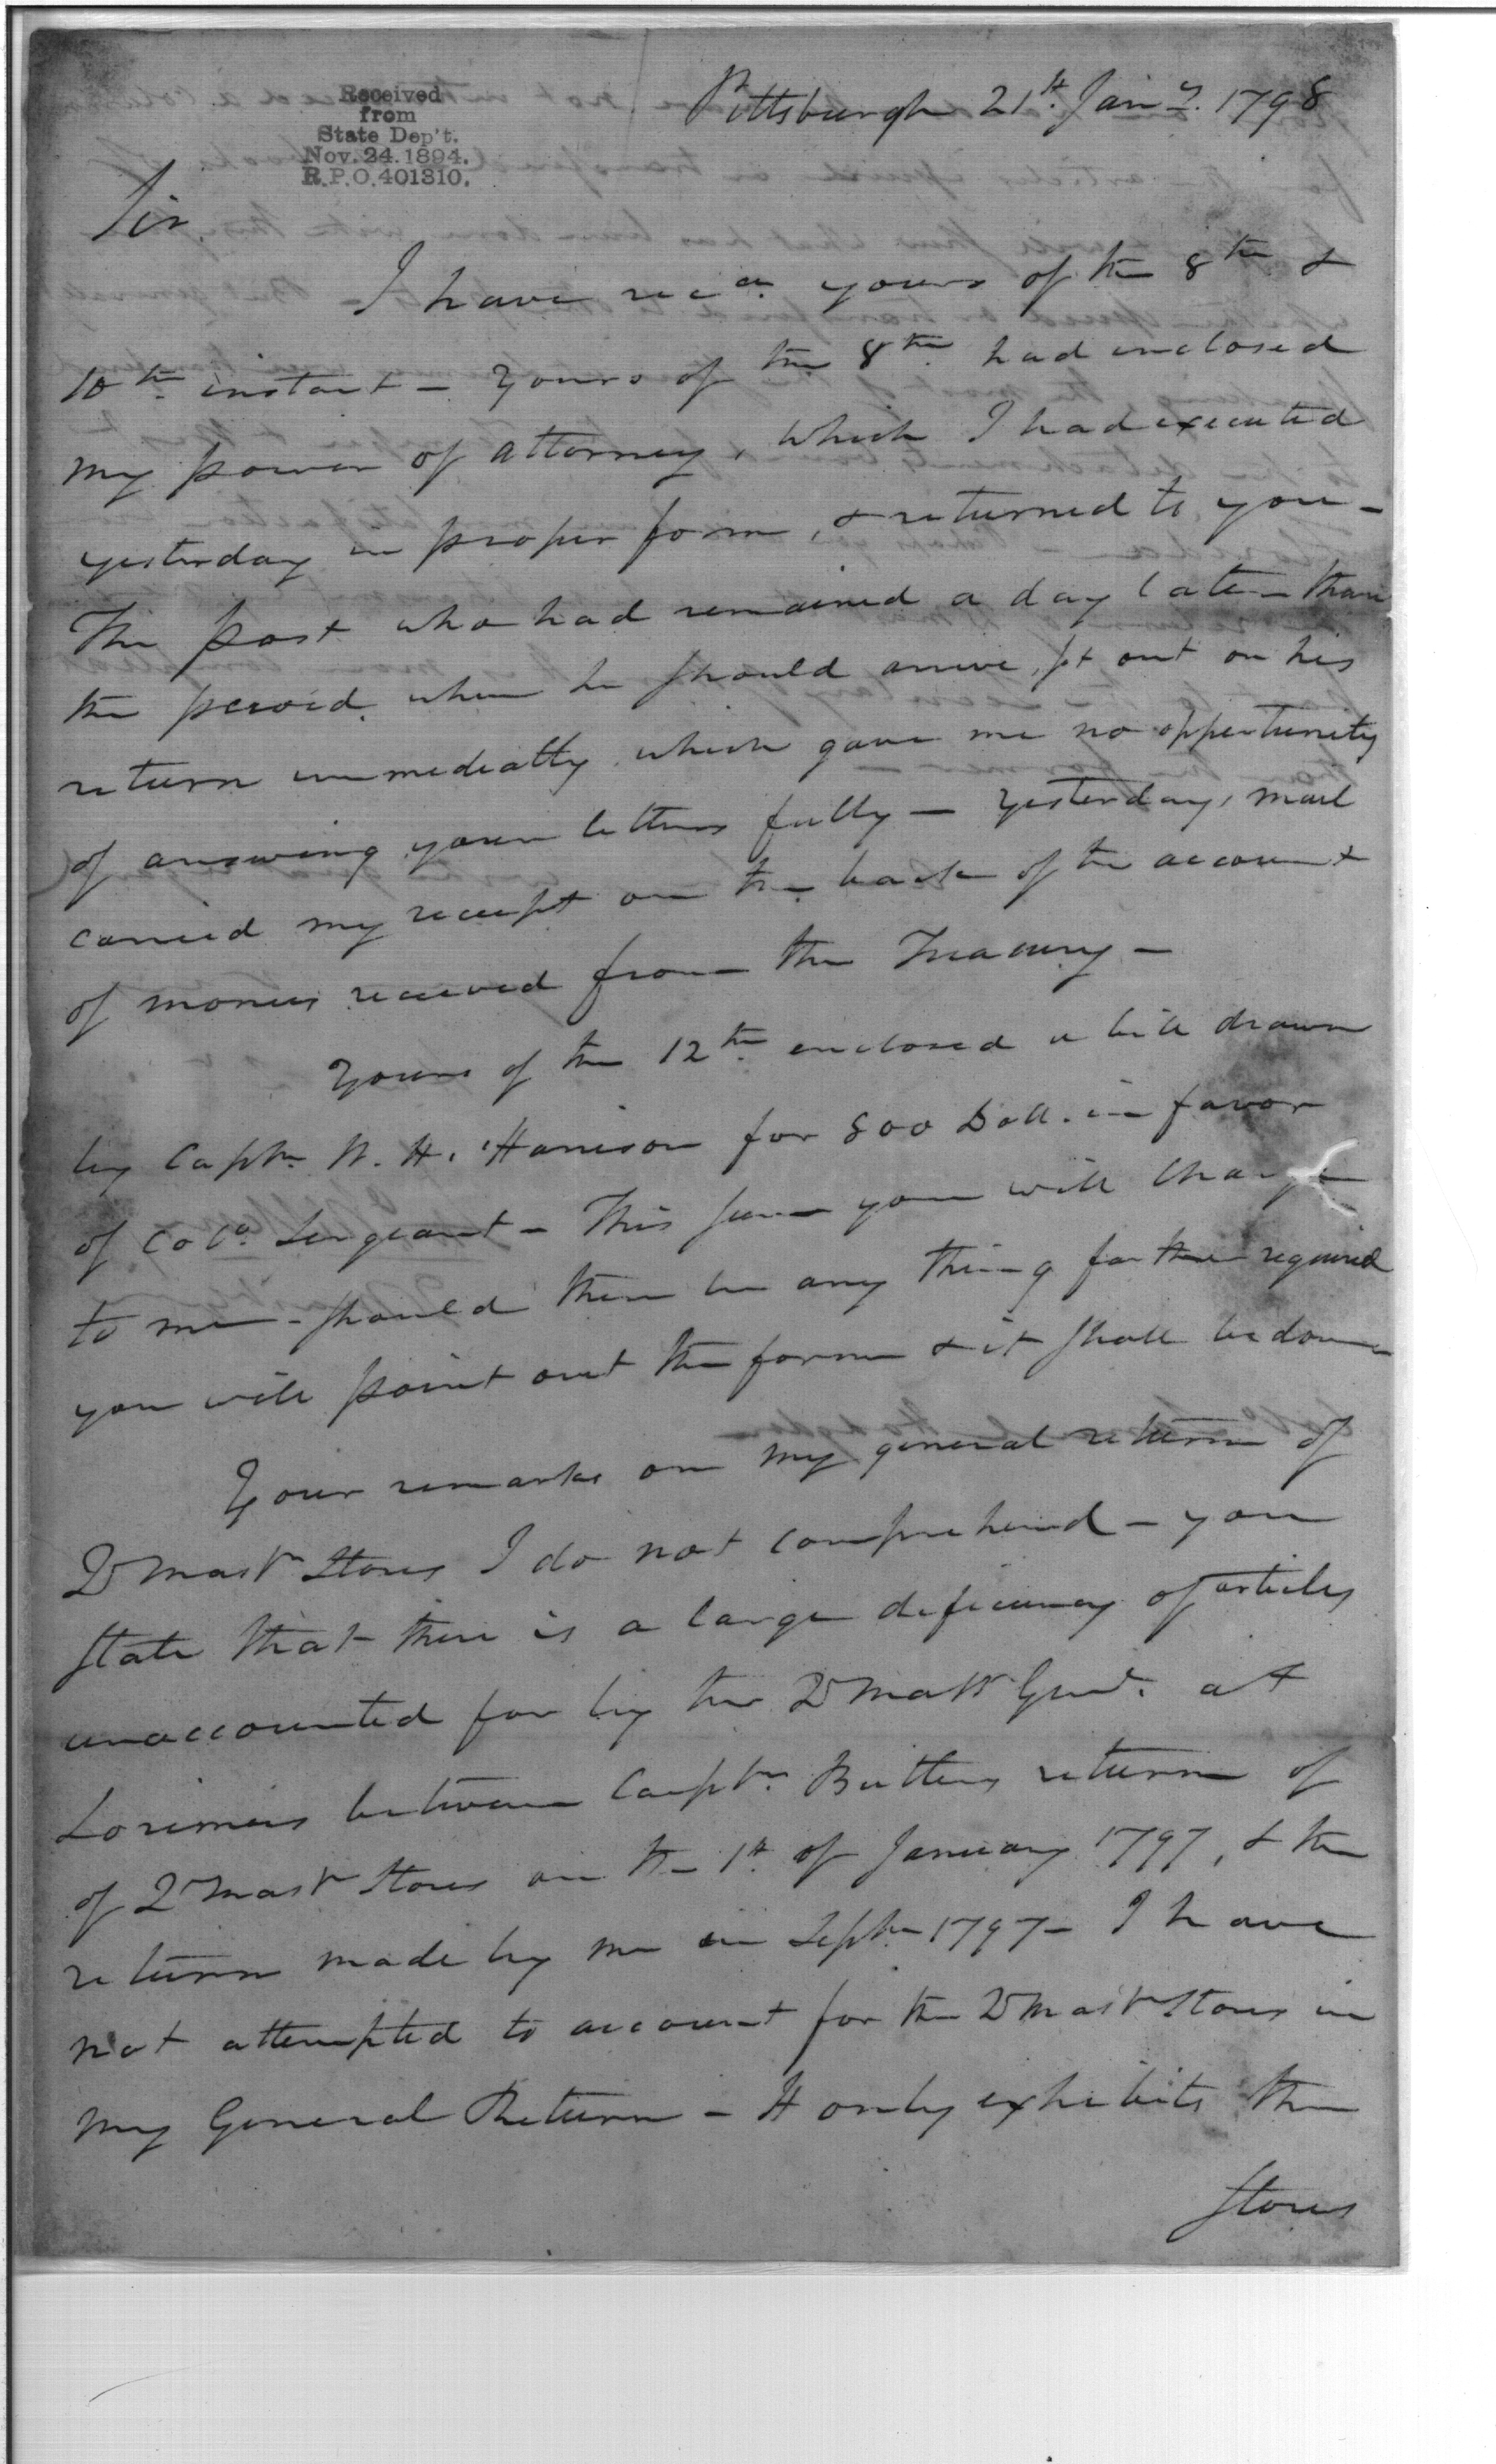 Pittsburgh 21st. Jany. 1798
Received
from
State Dep't.
Nov. 24. 1894.
R.P.O. 401310.
Sir.
I have recd. yours of the 8th. &
10th. instant – Yours of the 8th. had enclosed
my power of attorney, which I had executed
yesterday in proper form, & returned to you –
The post who had remained a day later than
the peroid when he should arrive, set out on his
return immediatly which gave me no oppertunity
of answering your letters fully – Yesterdays mail
carried my receipt on the back of the account
of monies received from the Treasury –
Yours of the 12th. enclosed a bill drawn
by Captn. W. H. Harrison for 800 Doll. in favor
of Colo. Sergeant – This sum you will charge
to me – should there be any thing farther required
you will point out the form & it shall be done
Your remarks on my general return of
Qr Mastr Stores I do not comprehend – you
state that there is a large deficiency of articles
unaccounted for by the Qr Mastr Genl. at
Lorimies between Captn. Butlers return of
of Qr Mastr Stores on the 1st. of January 1797, & the
return made by me in Septr 1797 – I have
not attempted to account for the Qr Mastr Stores in
my General Return – It only exhibits the
Stores